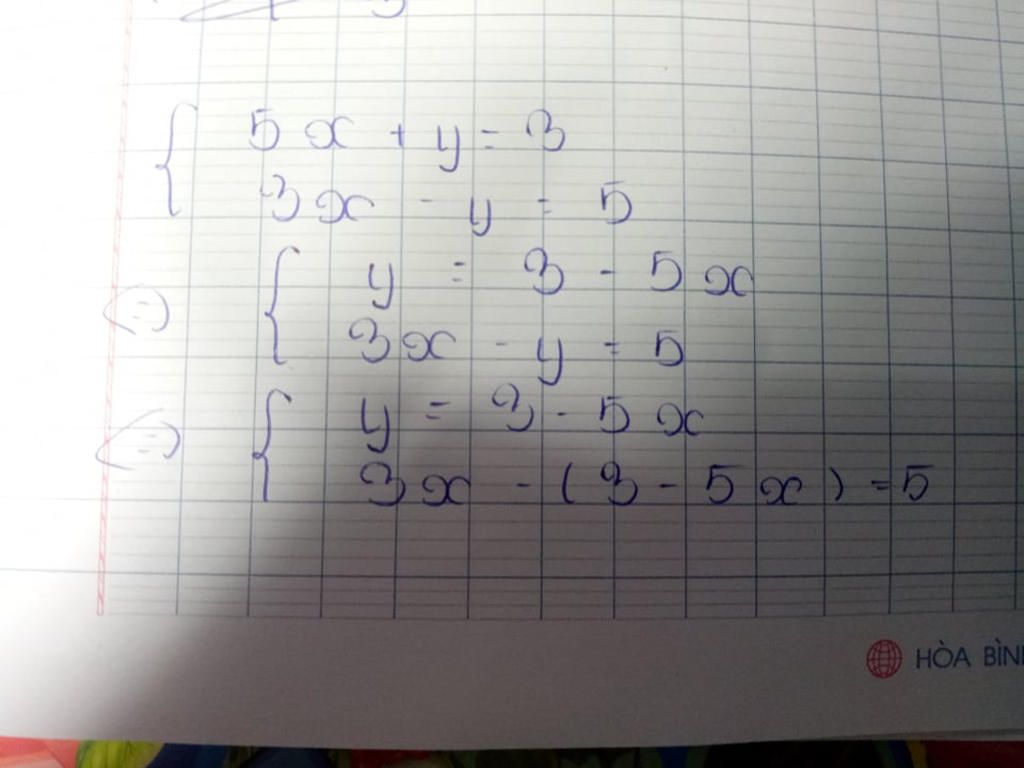 5x + y = 3
3x - y = 5
⇔ y = 3 - 5x
3x - y = 5
⇔ y = 3 - 5x
3x - (3 - 5x) = 5
HÒA BÌN